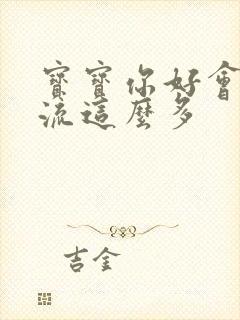 寶寶你好會
流這麼多
吉金